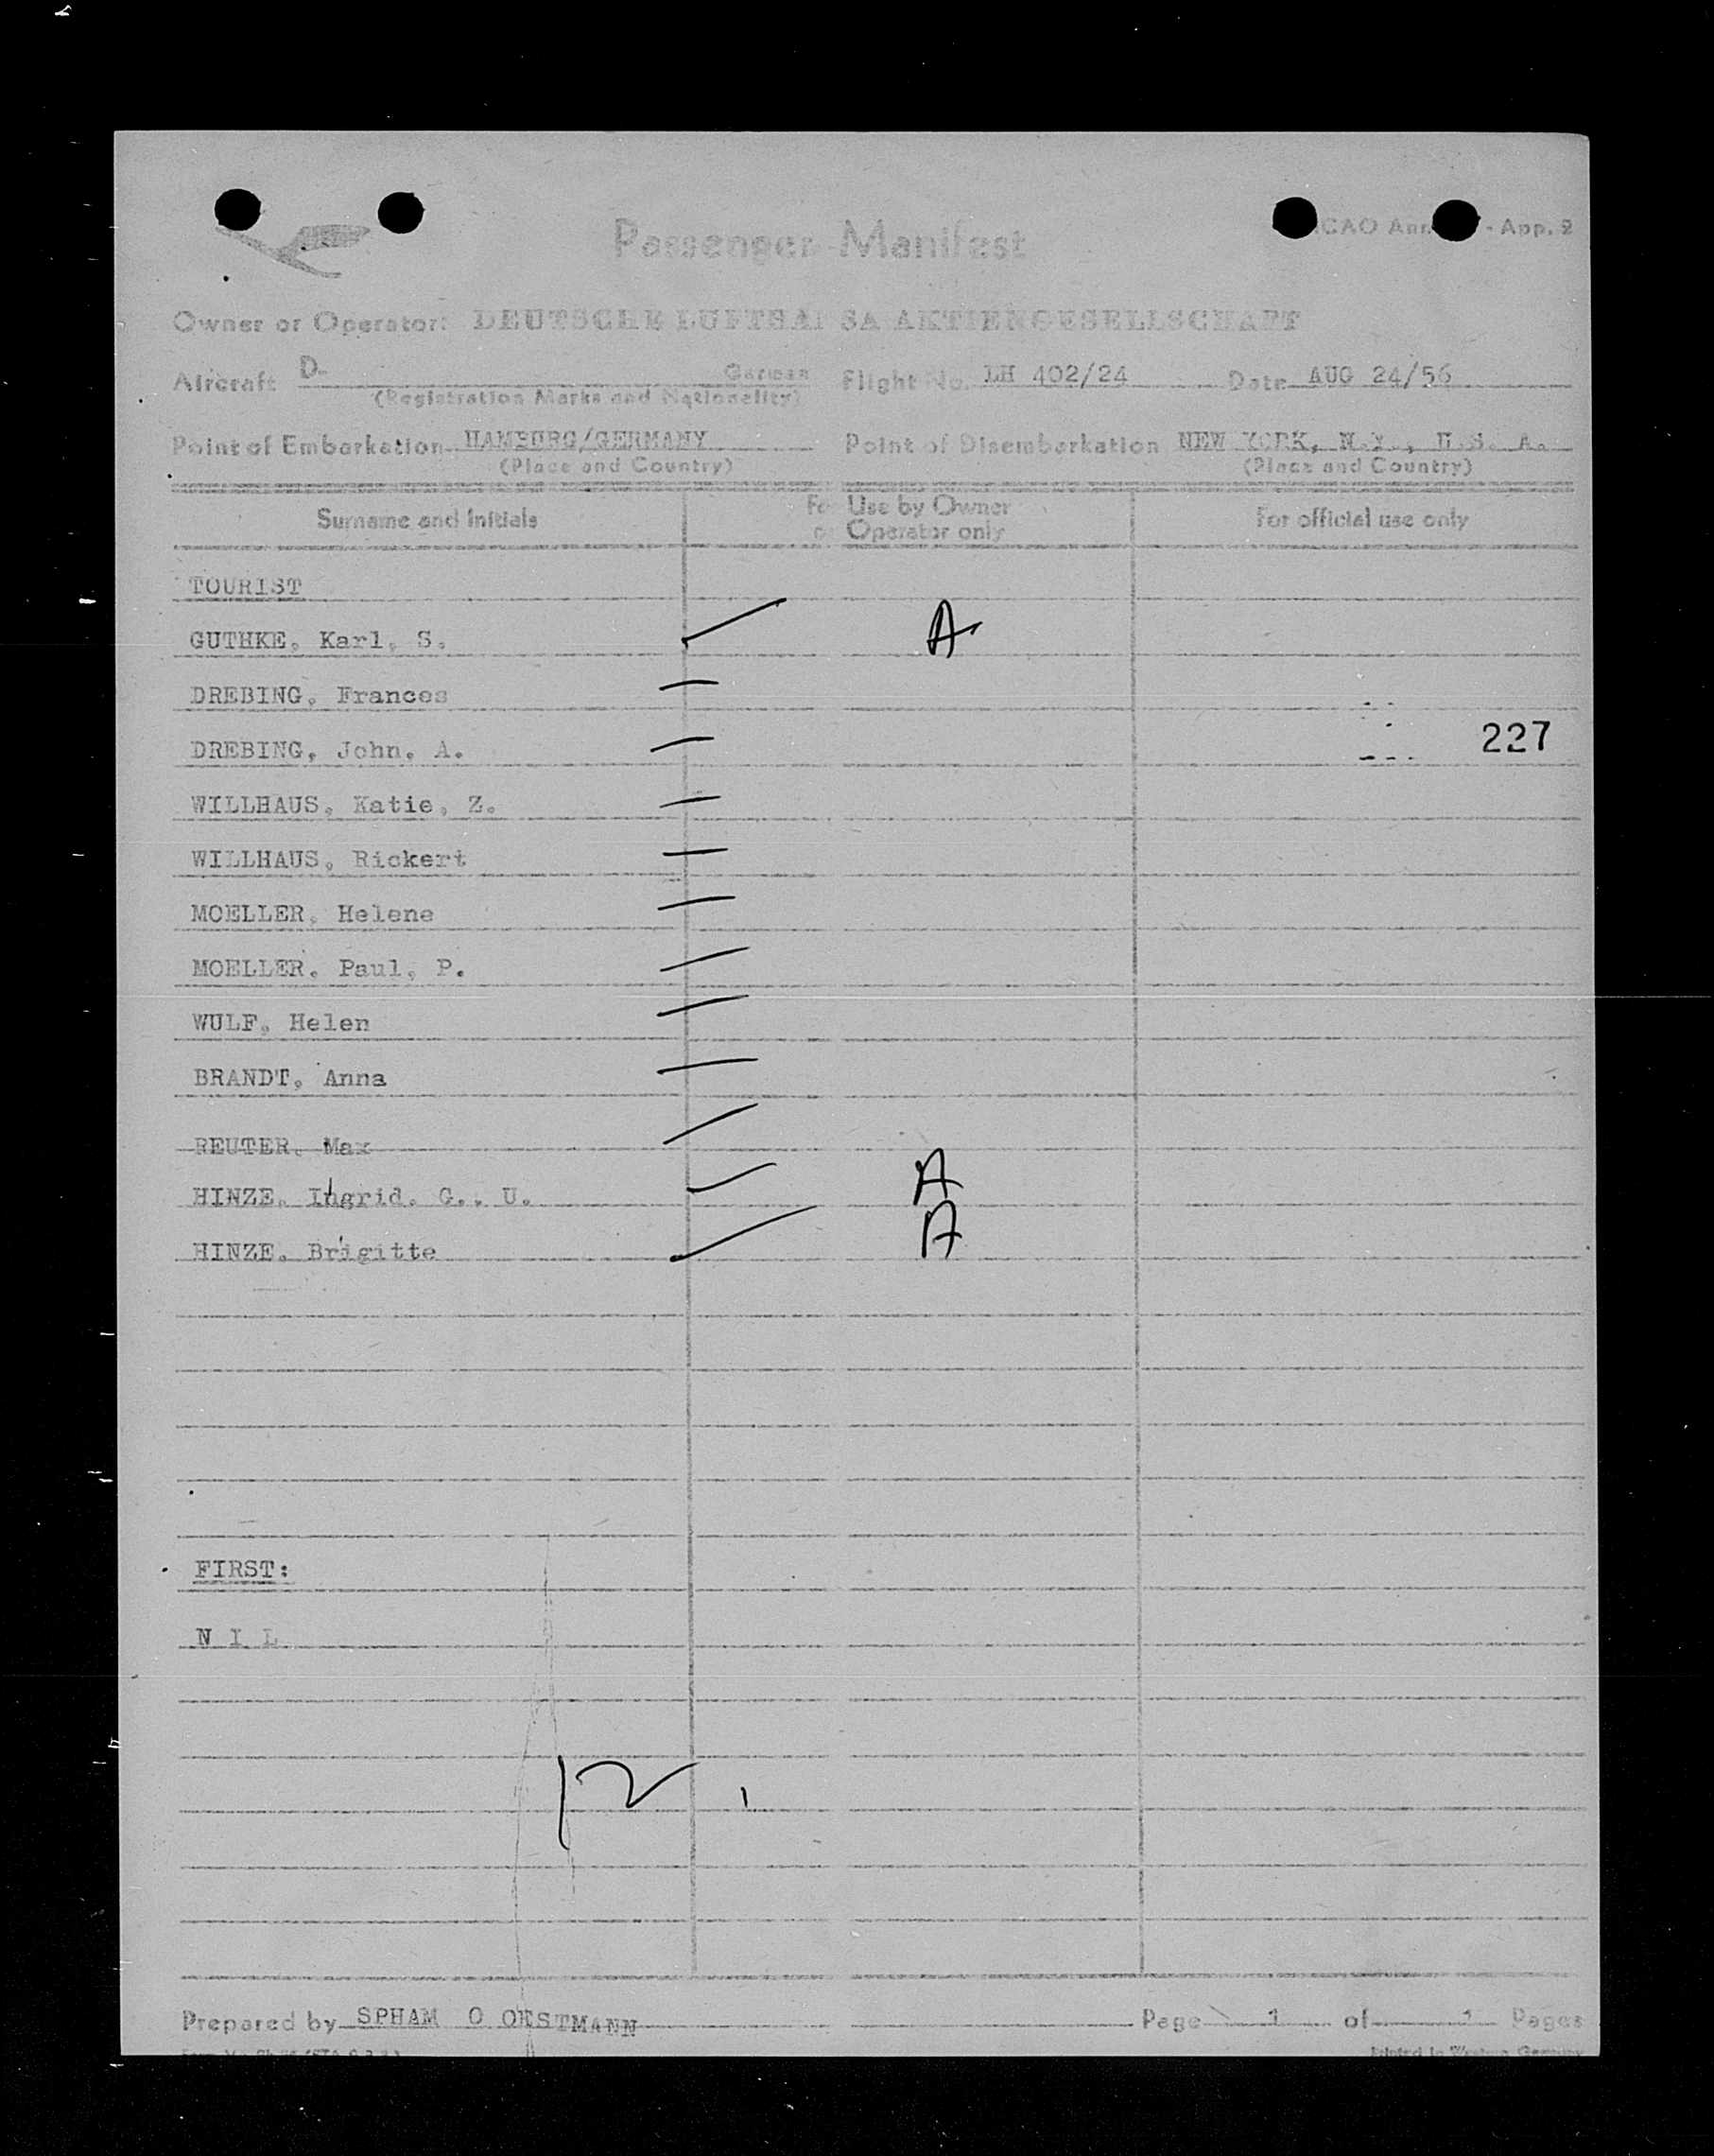 Passenger Manifest
ICAO Ann - App. 2
Owner or Operator: DEUTSCHE LUFTHANSA AKTIENGESELLSCHAFT
Aircraft D- German Flight No. LH 402/24 Date AUG 24/56
(Registration Marks and Nationality)
Point of Embarkation HAMBURG/GERMANY Point of Disembarkation NEW YORK, N.Y., U.S. A.
(Place and Country) (Place and Country)
Surname and Initials For Use by Owner or Operator only For official use only
TOURIST
GUTHKE, Karl, S. A
DREBING, Frances
DREBING, John, A. 227
WILLHAUS, Katie, Z.
WILLHAUS, Rickert
MOELLER, Helene
MOELLER, Paul, P.
WULF, Helen
BRANDT, Anna
REUTER, Max
HINZE, Ingrid, G., U. A
HINZE, Brigitte A
FIRST:
N I L
12
Prepared by SPHAM O OESTMANN Page 1 of 1 Pages
Printed in Western Germany